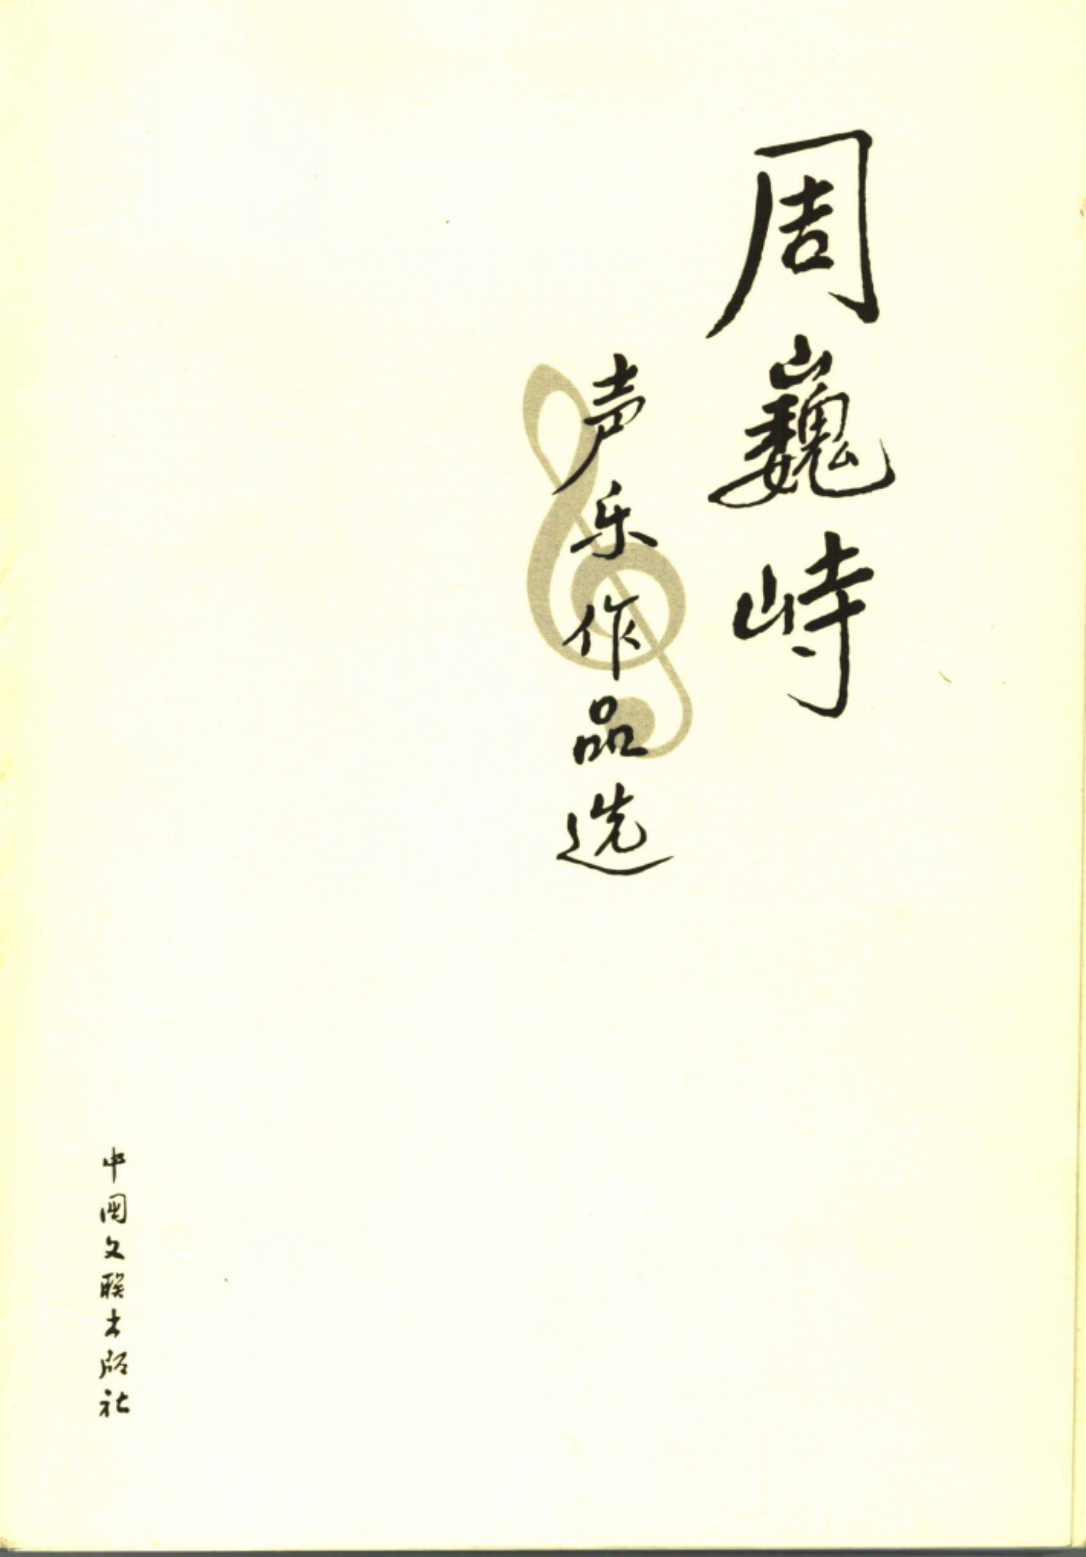 周巍峙
声乐作品选
中国文联出版社